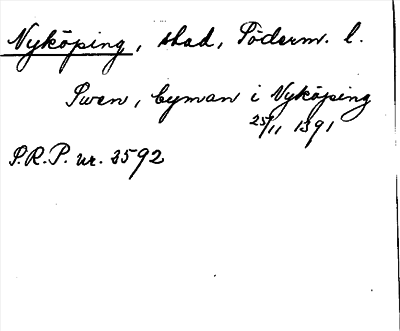 Nyköping, stad, Söderm. l.
Swen, byman i Nyköping
25/11 1391
S.R.P. nr. 2592